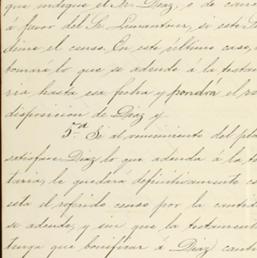 que indique el Sr. Diaz, o de can
á favor del Sr. Limantour, si este
dime el censo. En este último caso,
bonará lo que se adeude á la testa
ria hasta esa fecha y pondrá el
disposicion de Diaz y
5ª Si al vencimiento del pla
satisface Diaz lo que adeuda á la t
taria, le quedará definitivamente c
el referido censo por la cantid
se adeude, y sin que la testament
tenga que bonificar á Diaz cant